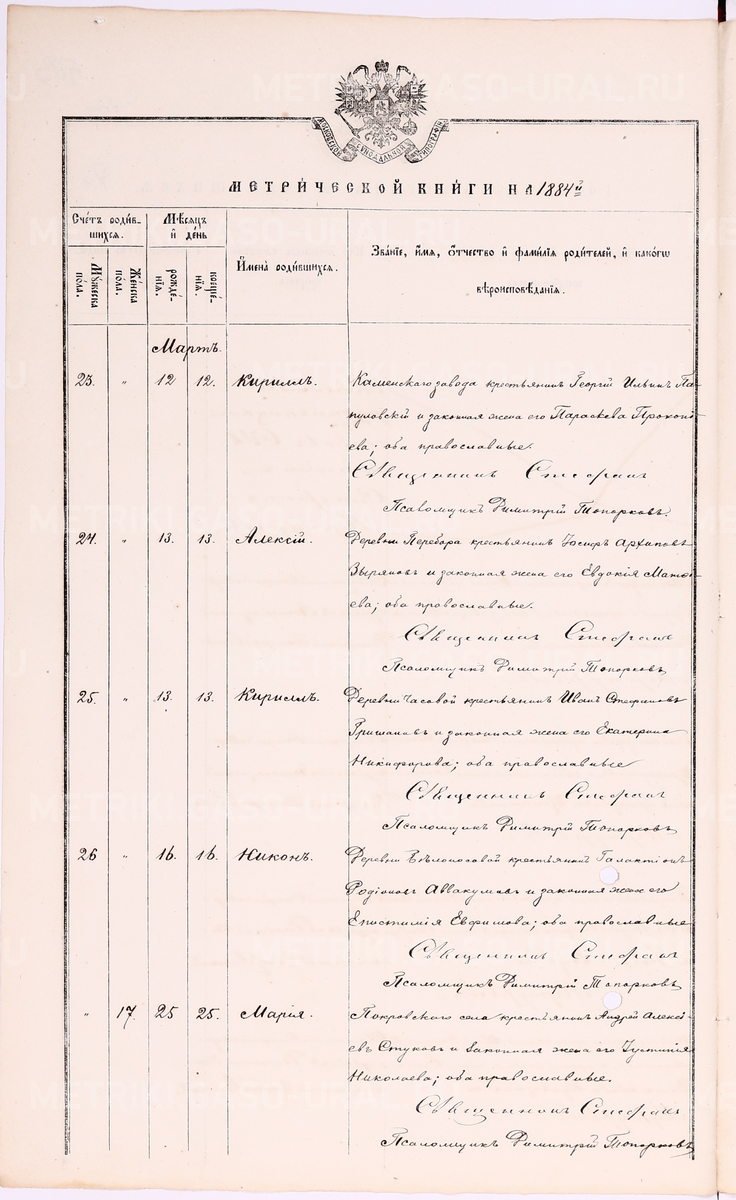 МОСКОВСКОЙ СѴНОДАЛЬНОЙ ТИПОГРАФІИ
МЕТРИЧЕСКОЙ КНИГИ НА 1884й
Счетъ родив-
шихся.
Мужеска
пола.
Женска
пола.
Мѣсяцъ
и день
рожде-
нія.
креще-
нія.
Имена родившихся.
Званіе, имя, отчество и фамилія родителей, и какогω
вѣроисповѣданія.
Мартъ.
23. " 12 12. Кириллъ. Каменскаго завода крестьянинъ Георгій Ильинъ Па-
пуловскій и законная жена его Параскева Прокопі-
ева; оба православные.
Священникъ Стефанъ
Псаломщикъ Димитрій Топорковъ.
24. " 13. 13. Алексій. Деревни Перебора крестьянинъ Іосифъ Архиповъ
Зыряновъ и законная жена его Евдокія Матѳ-
ева; оба православные.
Священникъ Стефанъ
Псаломщикъ Димитрій Топорковъ
25. " 13. 13. Кириллъ. Деревни Часовой крестьянинъ Иванъ Стефановъ
Гришановъ и законная жена его Екатерина
Никифорова; оба православные
Священникъ Стефанъ
Псаломщикъ Димитрій Топорковъ
26 " 16. 16. Никонъ. Деревни Бѣлоносовой крестьянинъ Галактіонъ
Родіоновъ Аввакумовъ и законная жена его
Епистимія Евфимова; оба православные
Священникъ Стефанъ
Псаломщикъ Димитрій Топорковъ
" 17. 25 25. Марія. Покровскаго села крестьянинъ Андрей Алексѣ-
евъ Стуковъ и законная жена его Іустинія
Николаева; оба православные.
Священникъ Стефанъ
Псаломщикъ Димитрій Топорковъ
METRIKI.GASO-URAL.RU